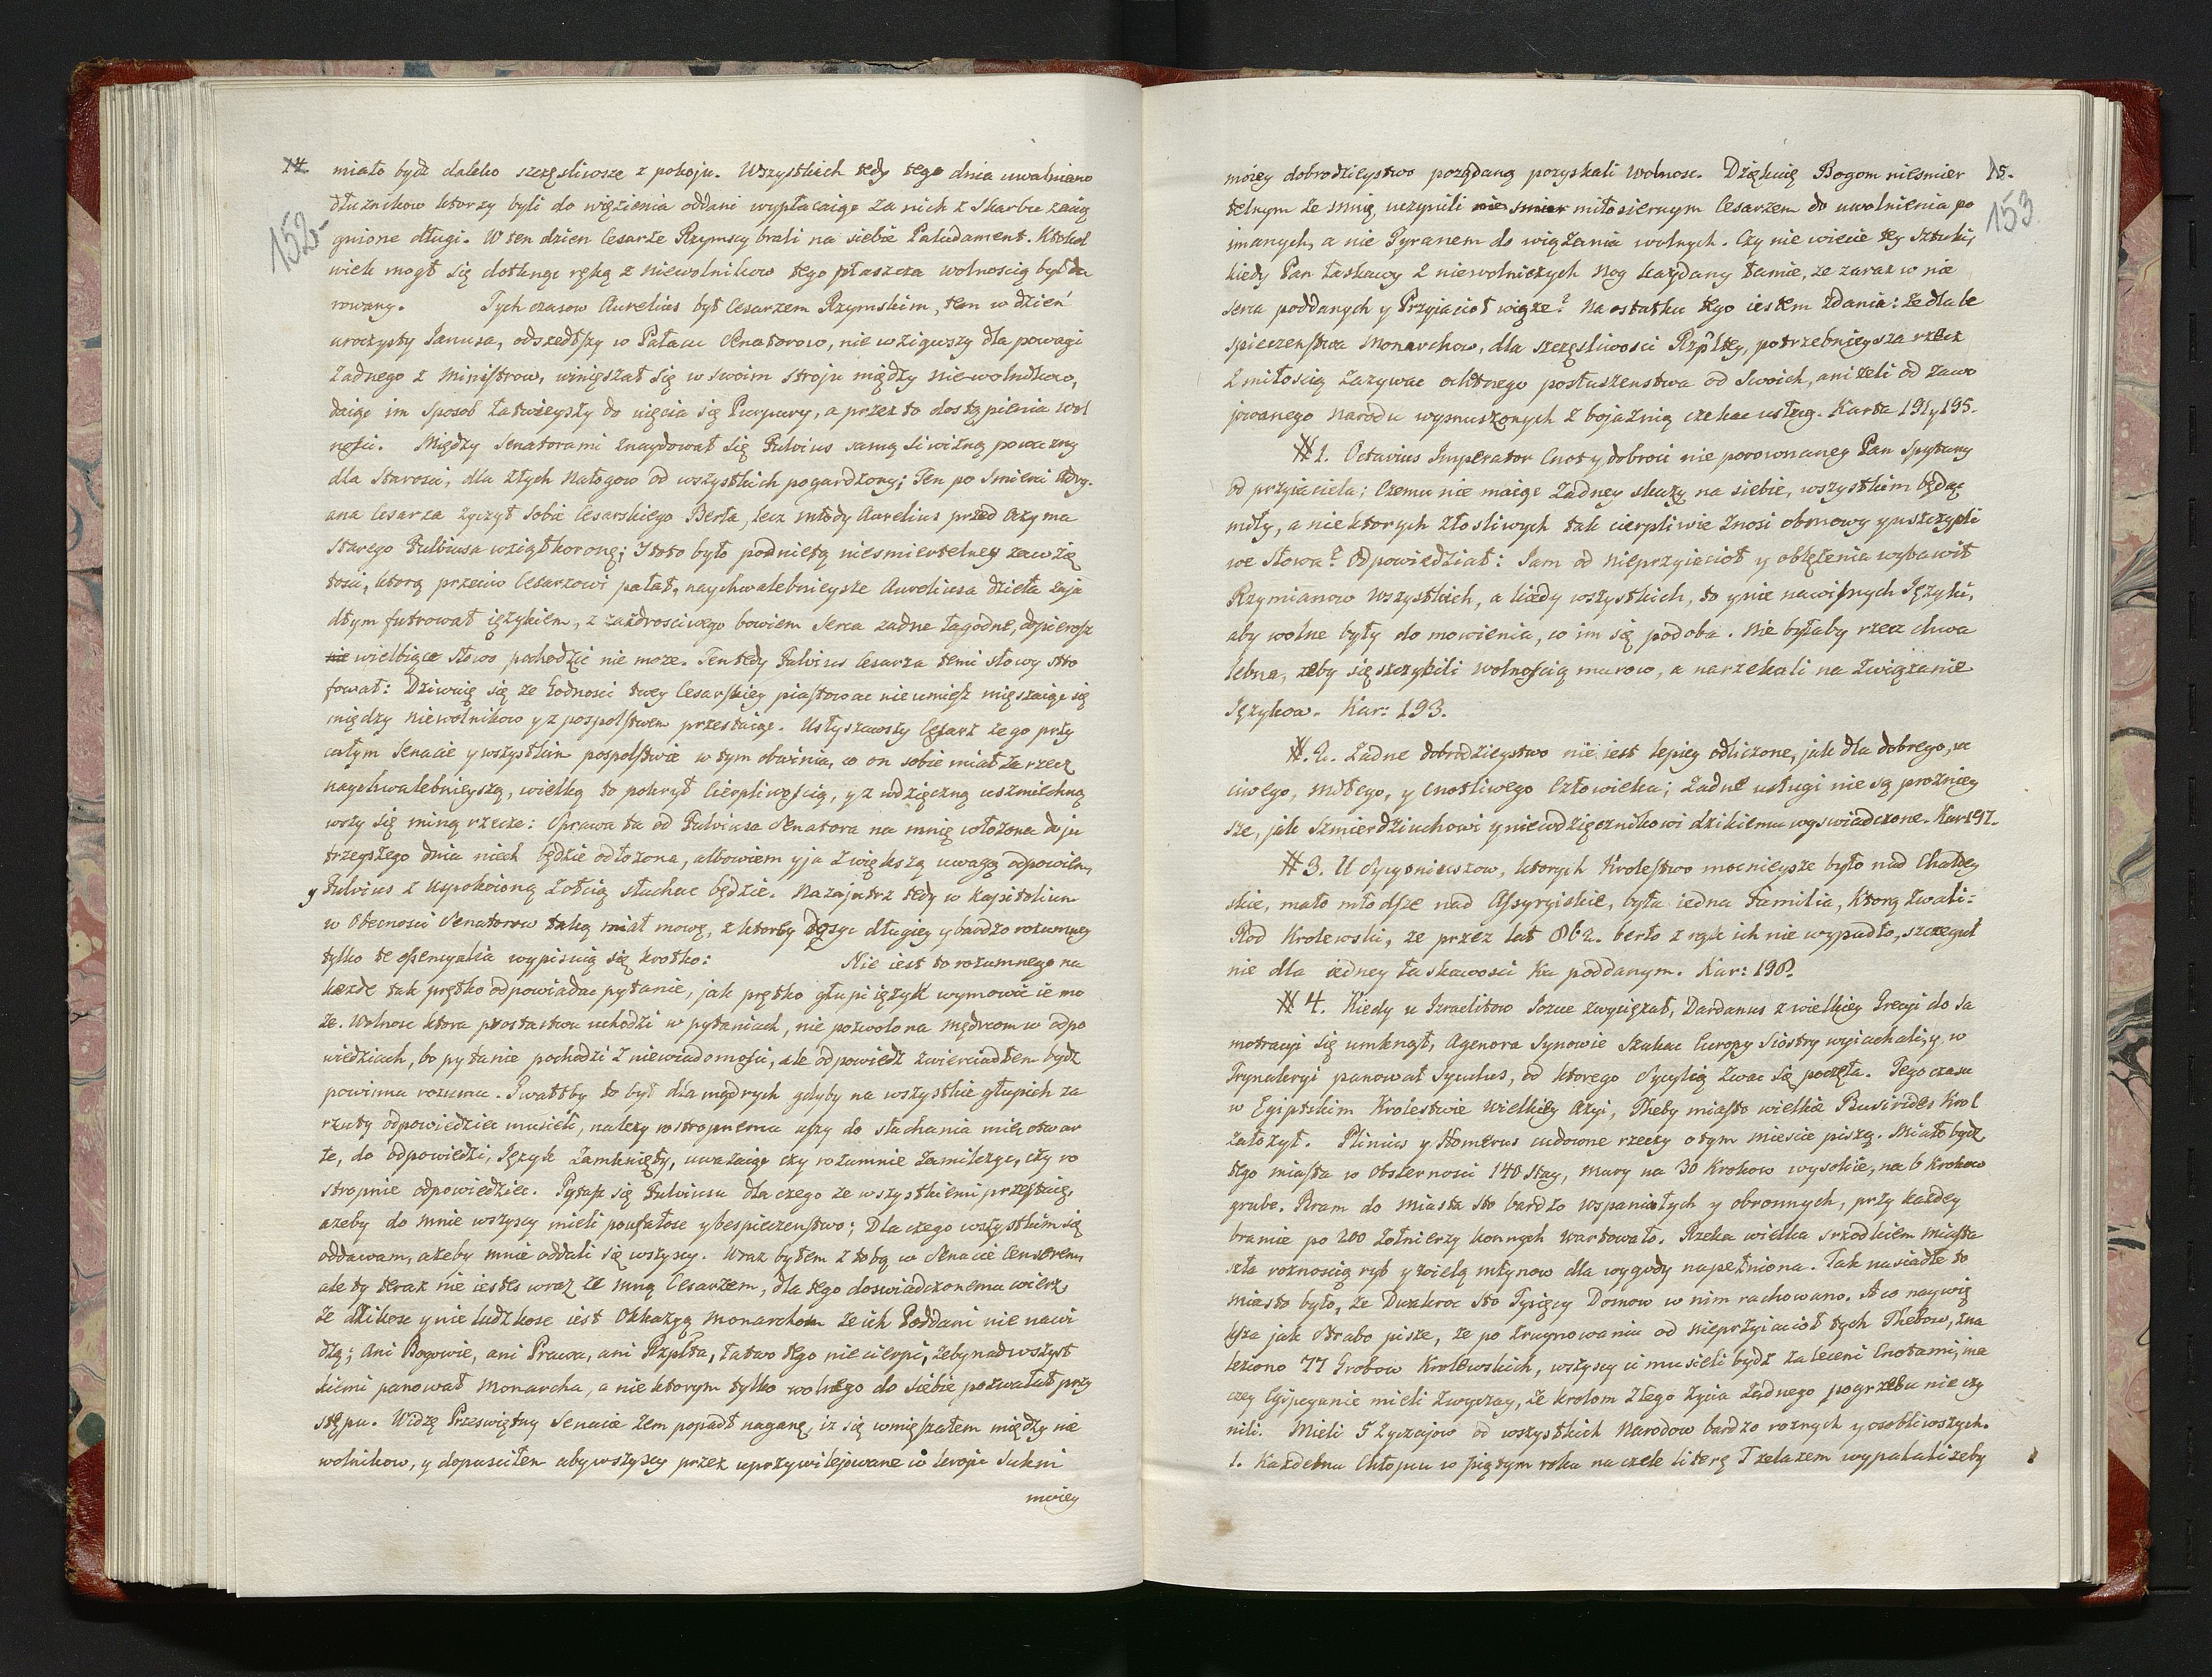 14. miało bydź daleko szczęsliwsze z pokoju. Wszystkich tedy tego dnia uwalniano
152
dłuznikow ktorzy byli do więzienia oddani wypłacaiąc za nich z Skarbu zaią
gnione długi. W ten dzien Cesarze Rzymscy brali na siebie Paludament. Ktokol
wiek mogł się dotknąc ręką z niewolnikow tego płaszcza wolnoscią był da
rowany. Tych czasow Aurelius był Cesarzem Rzymskim, ten w dzień
uroczysty Janusa, odszedłszy w Pałacu Senatorow, nie wziąwszy dla powagi
żadnego z Ministrow, wmięszał się w swoim stroju między niewolnikow,
daiąc im sposob łatwieyszy do ujęcia się Purpury, a przez to dostąpienia wol
ności. Między Senatorami znaydował się Fulvius samą siwizną powazny
dla Starosci, dla złych nałogow od wszystkich pogardzony; Ten po Smierci Adry-
ana Cesarza życzył sobie Cesarskiego Berła, lecz młody Aurelius przed oczyma
starego Fulviusa wziął koronę; I toto było podnietą niesmiertelney zawzię
tosci, ktorą przeciw Cesarzowi pałał, naychwalebnieysze Aureliusa dzieła zaja
dłym futrował językiem, z zazdrosciwego bowiem Serca zadne łagodne, dopierosz
nie wielbiące słowo pochodzic nie moze. Ten tedy Fulvius Cesarza temi słowy sto
fował: Dziwuię się ze Godnosci twey Cesarskiey piastowac nie umiesz mięszaiąc się
między niewolnikow y z pospolstwem przestaiąc. Usłyszawszy Cesarz ze go przy
całym Senacie y wszystkim pospolstwie w tym obwinia, co on sobie miał za rzecz
naychwalebnieyszą, wielką to pokrył Cierpliwością, y z wdzięczną uszmiechną
wszy się miną rzecze: Sprawa ta od Fulviusa Senatora na mnię włożona do ju
trzeyszego dnia niech będzie odłozona, albowiem y ja z większą uwagą odpowiem,
y Fulvius z uspokoioną żołcią słuchac będzie. Nazajutrz tedy w Kapitolium
w Obecnosci Senatorow taką miał mowę, z ktorey dosyc długiey y bardzo rozumney
tylko te essencyalia wypisuią się krotko: Nie iest to rozumnego na
kazde tak prętko odpowiadac pytanie, jak prętko głupi ięzyk wymowic ie mo
że. Wolnosc ktora prostactwu uchodzi w pytaniach, nie pozwolona mędrcom w odpo
wiedziach, bo pytanie pochodzi z niewiadomosci, ale odpowiedź zwierciadłem bydź
powinna rozumu. Gwałtby to był dla mądrych gdyby na wszystkie głupich za
rzuty odpowiedziec musieli, nalezy rostropnemu uszy do słuchania mieć otwar
te, do odpowiedzi, Język zamknięty, uwazaiąc czy rozumnie zamilczyc, czy ro
stropnie odpowiedziec. Pytasz się Fulviusu dla czego ze wszystkiemi przestaię,
azeby do mnie wszyscy mieli poufałosc y bespieczenstwo; Dla czego wszystkim się
oddawam, ażeby mnie oddali się wszyscy. Wraz byłem z tobą w Senacie Censorem,
ale ty teraz nie iestes wraz ze mną Cesarzem, dla tego doswiadczonemu wierz,
że dzikosc y nie ludzkosc iest Okkazyą Monarchom ze ich Poddani nie nawi
dzą; Ani Bogowie, ani Prawa, ani Rzplta, łatwo tego nie cierpi, żeby nad wszyst
kiemi panował Monarcha, a niektorym tylko wolnego do siebie pozwalał przy
stępu. Widzę Przeswiętny Senacie żem popadł naganę, iz się wmięszałem między nie
wolnikow, y dopusciłem aby wszyscy przez uprzywilejowane w kroju Sukni
moiey
moiey dobrodzieystwo pożądaną pozyskali wolnosc. Dziękuię Bogom niesmier 15.
153
telnym że mnię uczynili nie smier miłosiernym Cesarzem do uwolnienia po
imanych, a nie Tyranem do wiązania wolnych. Czy nie wiecie tey sztuki,
kiedy Pan łaskawy z niewolniczych nog kaydany łamie, że zaraz w nie
serca poddanych y Przyiacioł wiąże? Na ostatku tego iestem zdania: że dla be
spieczenstwa Monarchow, dla szczęsliwosci Rzplttey, potrzebnieysza rzecz
z miłoscią zazywac ochotnego posłuszenstwa od swoich, anizeli od zawo
jowanego narodu wymuszonych z bojaźnią czekac usług. Karta 191 y 195.
# 1. Octavius Imperator Cnoty dobroci nie porownaney Pan Spytany
od przyiaciela; Czemu nie maiąc żadney skazy na siebie, wszystkim będąc
miły, a niektorych złosliwych tak cierpliwie znosi obmowy y uszczypli
we słowa? Odpowiedział: Jam od nieprzyiacioł y oblężenia wybawił
Rzymianow wszystkich, a kiedy wszystkich, to y nie nawisnych Języki,
aby wolne były do mowienia, co im się podoba. Nie byłaby rzecz chwa
lebna, zeby się szczycili wolnoscią murow, a narzekali na związanie
Językow. Kar: 193.
# 2. Żadne dobrodzieystwo nie iest lepiey odliczone, jak dla dobrego, uc
ciwego, miłego, y cnotliwego Człowieka; Żadne usługi nie są prozniey
sze, jak Szmierdziuchowi y niewdzięcznikowi dzikiemu wyswiadczone. Kar 197.
# 3. U Sycyonieuszow, ktorych Krolestwo mocnieysze było nad Chaldey
skie, mało młodsze nad Assyryiskie, była iedna Familia, ktorą zwali:
Rod Krolewski, ze przez lat 862. berło z rąk ich nie wypadło, szczegul
nie dla iedney łaskawosci ku poddanym. Kar: 198.
# 4. Kiedy u Izraelitow Jozue zwyciężał, Dardanus z wielkiey Grecyi do Sa
motracyi się umknął, Agenora Synowie szukac Europy Siostry wyiachali, y w
Trynakryi panował Syculus, od ktorego Sycylią zwac się poczęła. Tego czasu
w Egiptskim Krolestwie wielkiey Azyi, Theby miasto wielkie Busirides Krol
założył. Plinius y Homerus cudowne rzeczy o tym miescie piszą. Miało bydź
tego miasta w Obszernosci 140 stay, mury na 30 krokow wysokie, na 6 krokow
grube. Bram do miasta sto bardzo wspaniałych y obronnych, przy kazdey
bramie po 200 żołnierzy konnych wartowało. Rzeka wielka srzodkiem miasta
szła roznoscią ryb y wielą młynow dla wygody napełniona. Tak nasiadłe to
miasto było, że Dwakroc sto Tysięcy Domow w nim rachowano. A co naywię
ksza jak Strabo pisze, ze po zruynowaniu od nieprzyiacioł tych Thebow, zna
leziono 77 Grobow Krolewskich, wszyscy ci musieli bydź zaleceni Cnotami, ina
czey Egipcyanie mieli zwyczay, że krolom złego życia żadnego pogrzebu nie czy
nili. Mieli 5 Zyczajow od wszystkich Narodow bardzo roznych y osobliwszych.
1. Każdemu Chłopcu w piątym roku na czele literę T zelazem wypalali zeby